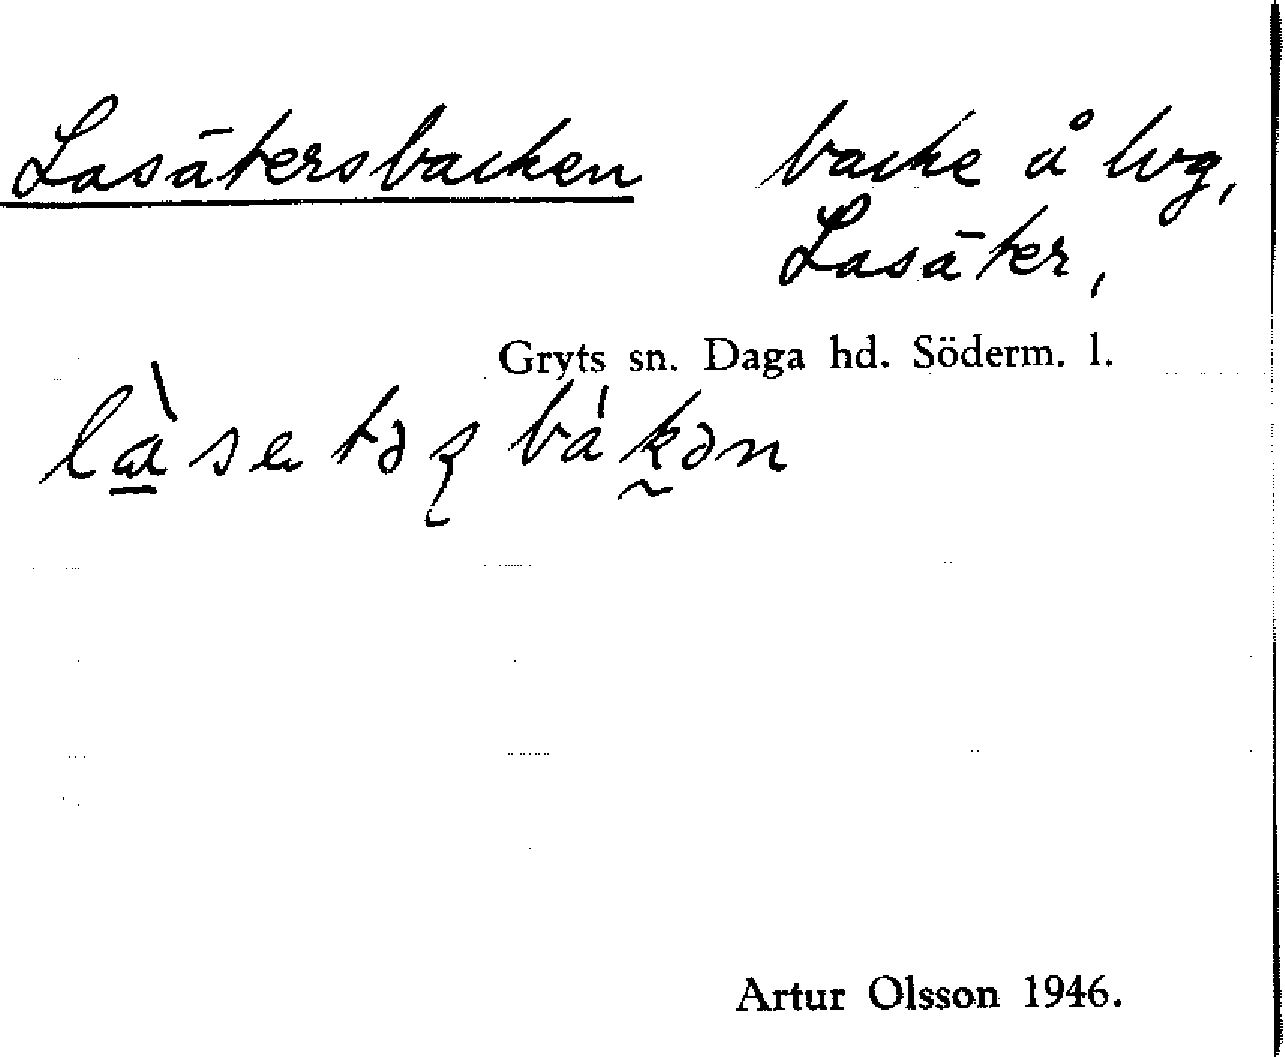 Lasätersbacken backe å lvg,
Lasäter,
Gryts sn. Daga hd. Söderm. l.
là̱setəʂbákən
Artur Olsson 1946.